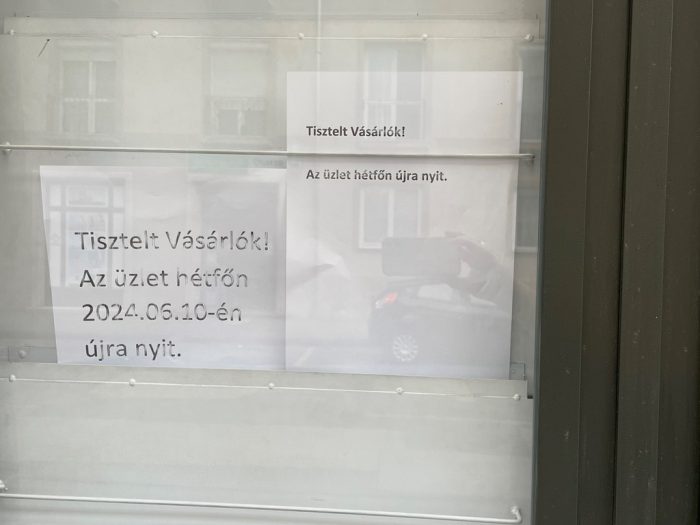 Tisztelt Vásárlók!
Az üzlet hétfőn
2024.06.10-én
újra nyit.
Tisztelt Vásárlók!
Az üzlet hétfőn újra nyit.